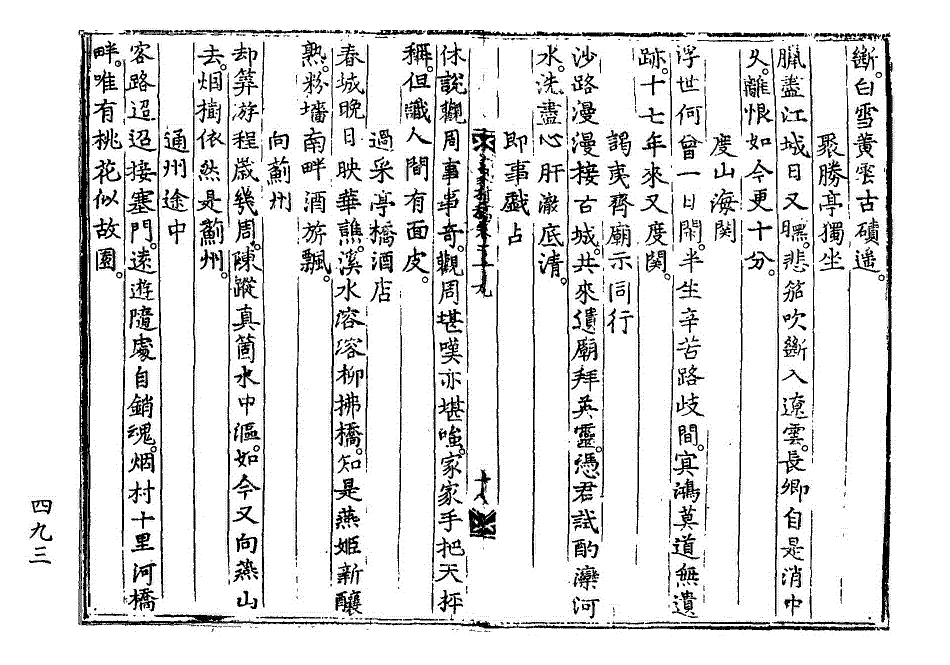 斷。白雪黃雲古磧遙。
聚勝亭獨坐
臘盡江城日又曛。悲笳吹斷入遼雲。長卿自是消中
久。離恨如今更十分。
度山海関
浮世何曾一日閑。半生辛苦路歧間。冥鴻莫道無遺
跡。十七年來又度関。
謁夷齊廟示同行
沙路漫漫接古城。共來遺廟拜英靈。憑君試酌灤河
水。洗盡心肝澈底清。
即事戲占
十八
休說觀周事事奇。觀周堪嘆亦堪嗤。家家手把天枰
稱。但識人間有面皮。
過采亭橋酒店
春城晚日映華譙。溪水溶溶柳拂橋。知是燕姬新釀
熟。粉墻南畔酒旂飄。
向薊州
却筭游程歲幾周。陳蹤真箇水中漚。如今又向燕山
去。烟樹依然是薊州。
通州途中
客路迢迢接塞門。遠遊隨處自銷魂。烟村十里河橋
畔。唯有桃花似故園。
四九三